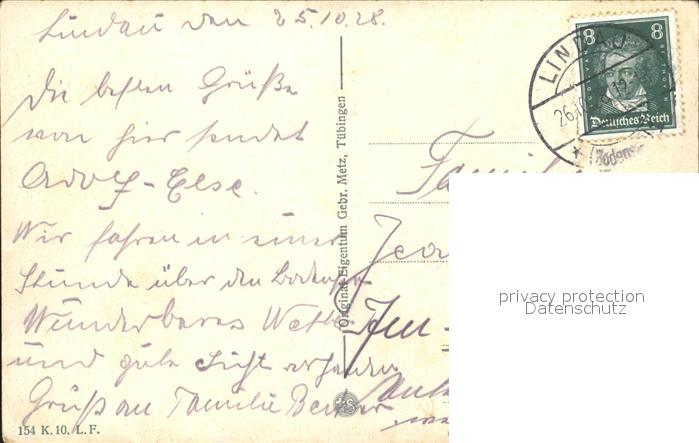 Lindau den 25.10.28.
Die besten Grüße
von hier sendet
Adolf-Else.
Wir fahren in einer
Stunde über den Bodensee
Wunderbares Wetter
und gute Sicht
Gruß an Familie
154 K. 10. L. F.
Original-Eigentum Gebr. Metz, Tübingen
8 8
Deutsches Reich
LINDAU
Familie
privacy protection
Datenschutz